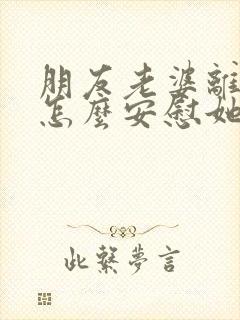 朋友老婆離
怎麼安慰她
此繁夢言